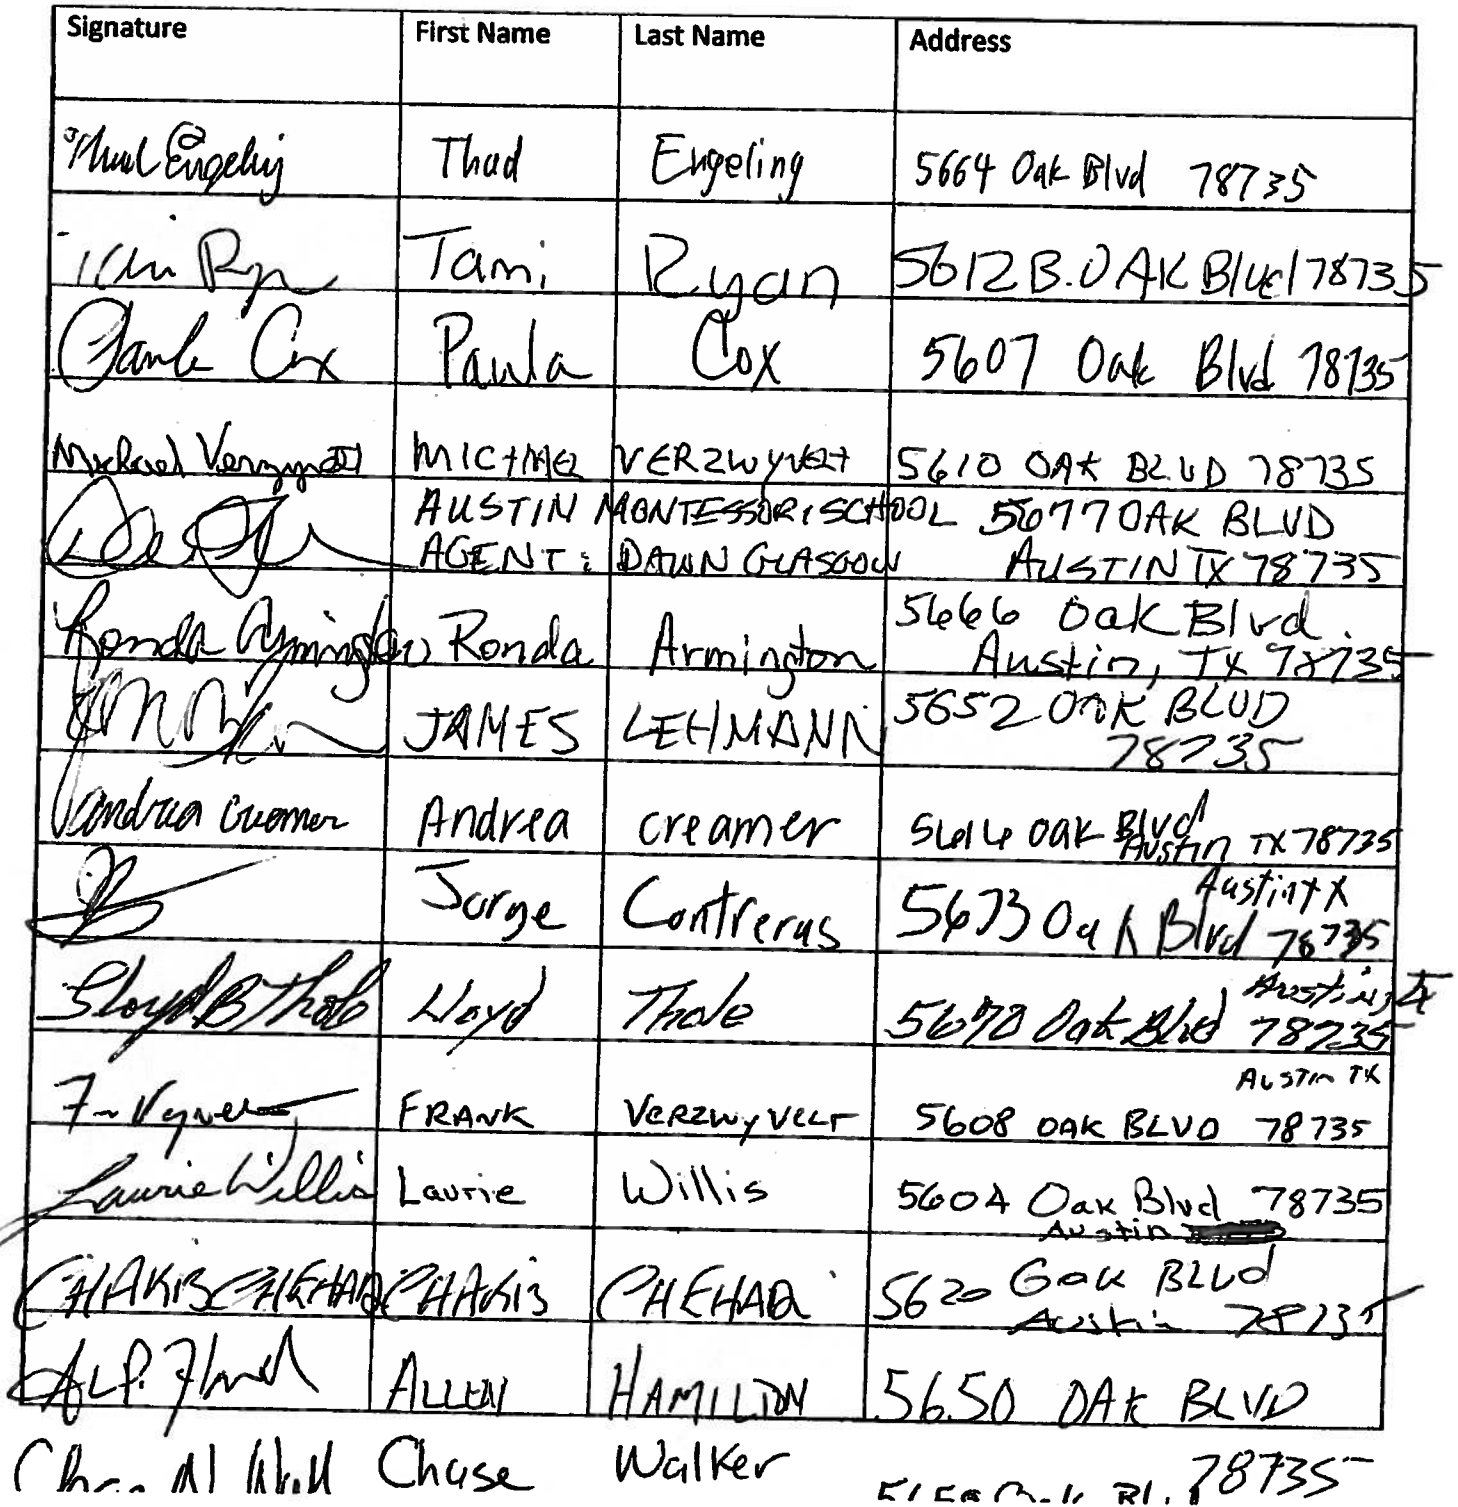 Signature First Name Last Name Address
Thad Engeling Thad Engeling 5664 Oak Blvd 78735
Tami Ryan Tami Ryan 5612 B. OAK Blvd 78735
Paula Cox Paula Cox 5607 Oak Blvd 78735
Michael MICHAEL VERZWYVELT 5610 OAK BLVD 78735
AUSTIN MONTESSORI SCHOOL 5677 OAK BLVD
AGENT: DAWN GLASGOW AUSTIN TX 78735
5666 Oak Blvd.
Ronda Armington Ronda Armington Austin, TX 78735
JAMES LEHMANN 5652 OAK BLVD
78735
Andrea Creamer Andrea creamer 5616 Oak Blvd
Austin TX 78735
Austin TX
Jorge Contreras 5673 Oak Blvd 78735
Austin, TX
Lloyd B Thole Lloyd Thole 5670 Oak Blvd 78735
Austin TX
FRANK VERZWYVELT 5608 OAK BLVD 78735
Laurie Willis Laurie Willis 5604 Oak Blvd 78735
Austin
CHAKIB CHEHADI CHAKIB CHEHADI 5620 Oak BLVD
Austin 78735
ALLEN HAMILTON 5650 OAK BLVD
Chase Walker 78735